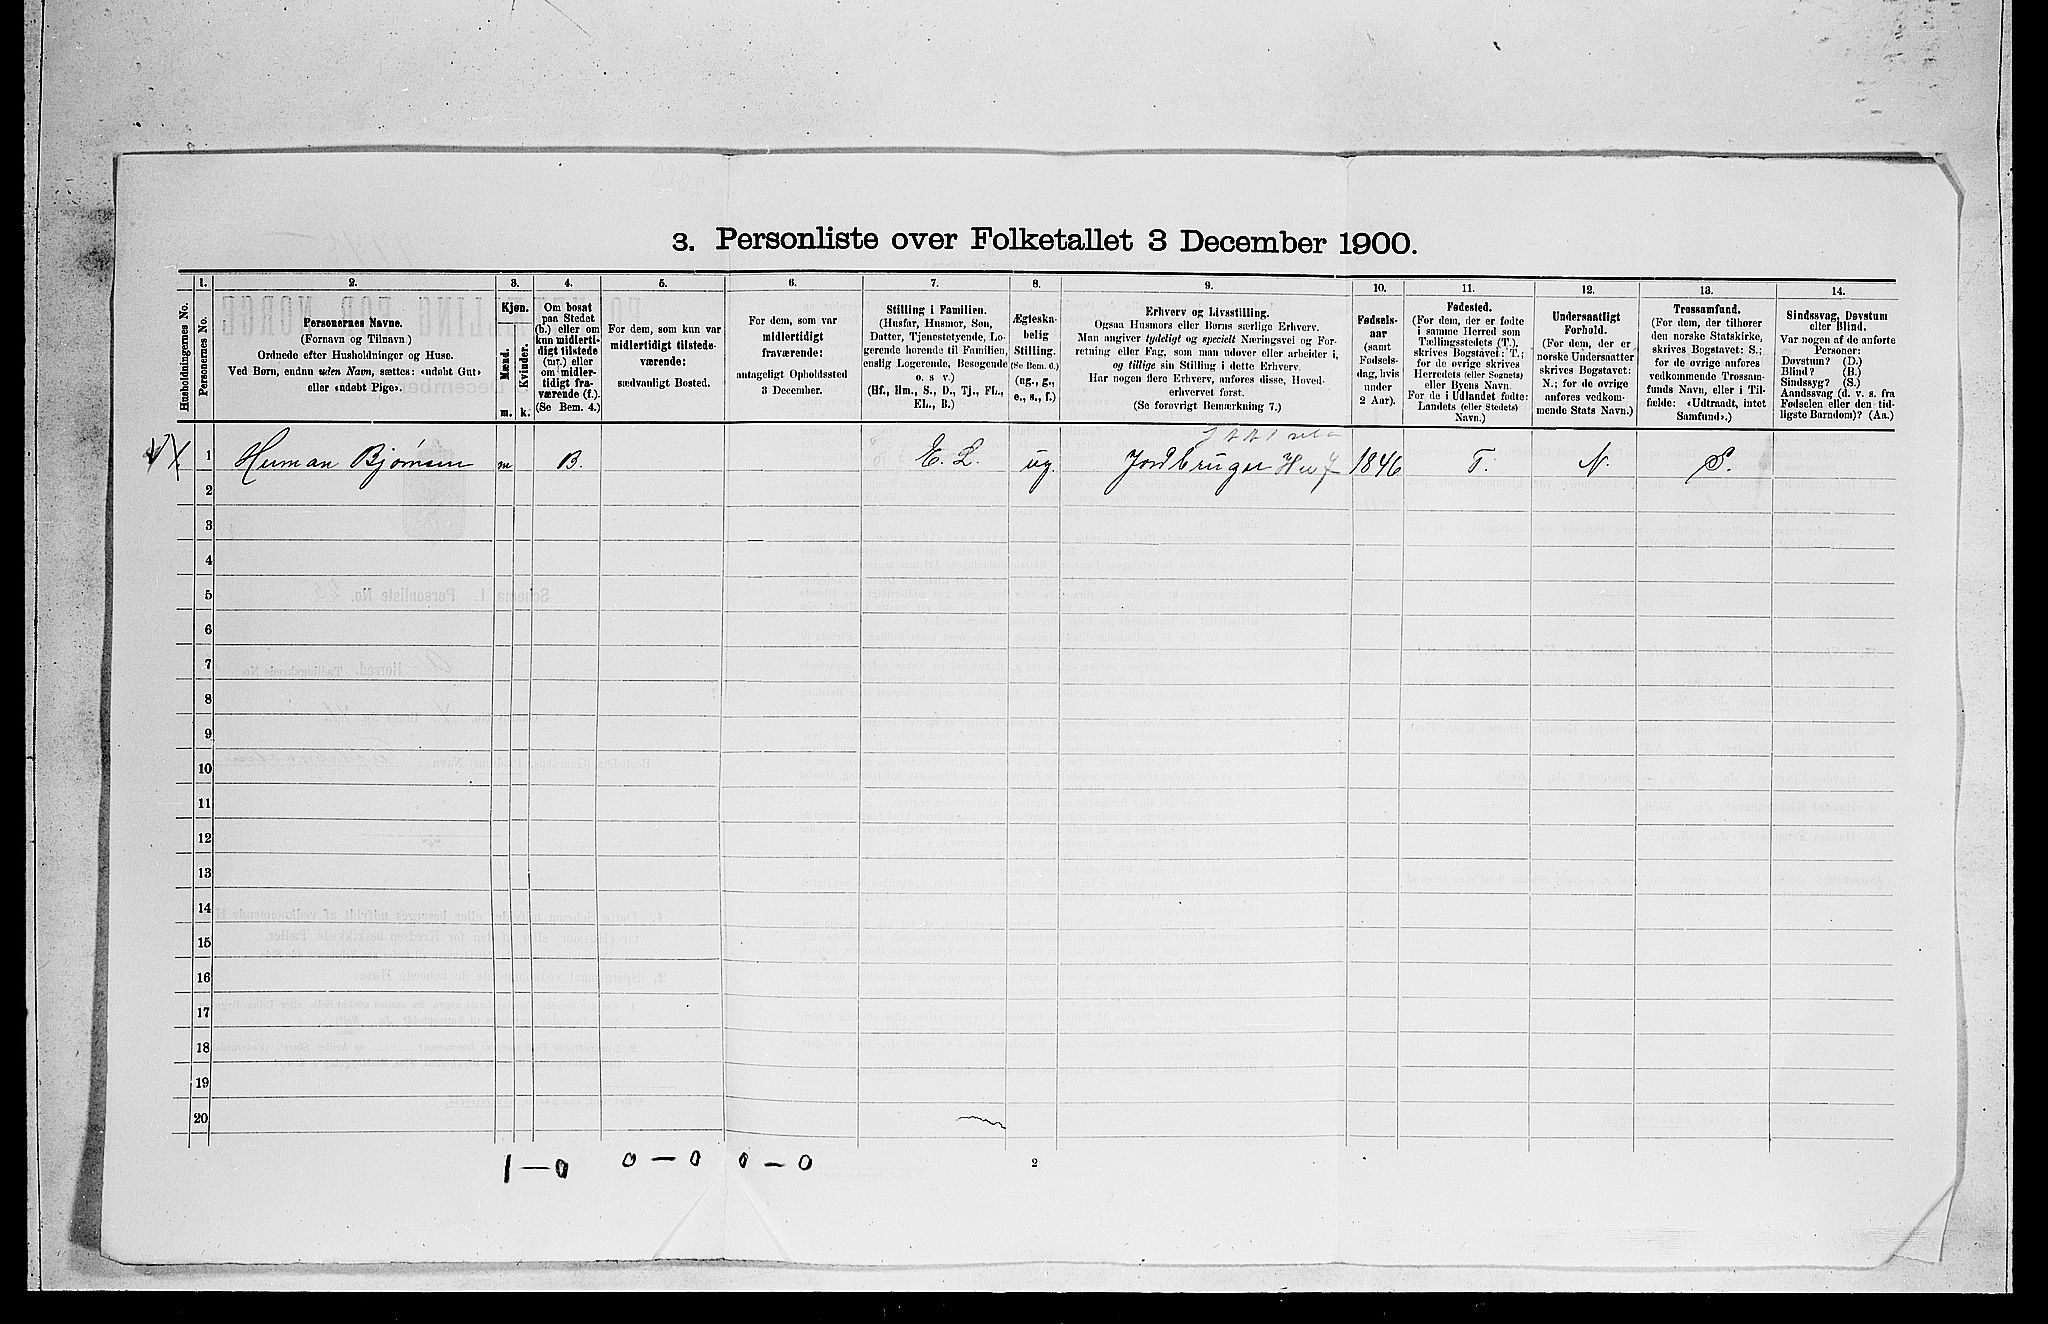 3. Personliste over Folketallet 3 December 1900.
Husholdningernes No.
1.
Personernes No.
2.
Personernes Navne.
(Fornavn og Tilnavn.)
Ordnede efter Husholdninger og Huse.
Ved Børn, endnu uden Navn, sættes: «udøbt Gut»
eller «udøbt Pige».
3.
Kjøn.
Mænd.
Kvinder.
m. k.
4.
Om bosat
paa Stedet
(b.) eller om
kun midlerti-
digt tilstede
(mt.) eller
om midler-
tidigt fra-
værende (f.).
(Se Bem. 4.)
5.
For dem, som kun var
midlertidigt tilstede-
værende:
sædvanligt Bosted.
6.
For dem, som var
midlertidigt
fraværende:
antageligt Opholdssted
3 December.
7.
Stilling i Familien.
(Husfar, Husmor, Søn,
Datter, Tjenestetyende, Lo-
gerende hørende til Familien,
enslig Logerende, Besøgende
o. s. v.)
(Hf., Hm., S., D., Tj., FL.,
EL., B.)
8.
Ægteska-
belig
Stilling.
(Se Bem. 6.)
(ug., g.,
e., s., f.)
9.
Erhverv og Livsstilling.
Ogsaa Husmors eller Børns særlige Erhverv.
Man angiver tydeligt og specielt Næringsvei og For-
retning eller Fag, som man udøver eller arbeider i,
og tillige sin Stilling i dette Erhverv.
Har nogen flere Erhverv, anføres disse, Hoved-
erhvervet først.
(Se forøvrigt Bemærkning 7.)
10.
Fødsels-
aar
(samt
Fødsels-
dag, hvis
under
2 Aar).
11.
Fødested.
(For dem, der er fødte
i samme Herred som
Tællingsstedets (T.),
skrives Bogstavet: T.;
for de øvrige skrives
Herredets (eller Sognets)
eller Byens Navn.
For de i Udlandet fødte:
Landets (eller Stedets)
Navn.)
12.
Undersaatligt
Forhold.
(For dem, der er
norske Undersaatter
skrives Bogstavet:
N.; for de øvrige
anføres vedkom-
mende Stats Navn.)
13.
Trossamfund.
(For dem, der tilhører
den norske Statskirke,
skrives Bogstavet: S.;
for de øvrige anføres
vedkommende Trossam-
funds Navn, eller i Til-
fælde: «Udtraadt, intet
Samfund».)
14.
Sindssvag, Døvstum
eller Blind.
Var nogen af de anførte
Personer:
Døvstum? (D.)
Blind? (B.)
Sindssyg? (S.)
Aandssvag (d. v. s. fra
Fødselen eller den tid-
ligste Barndom)? (Aa.)
1 Herman Bjørnsen m B. E. L. ug. Jordbruger 1846 T. N. S.
2
3
4
5
6
7
8
9
10
11
12
13
14
15
16
17
18
19
20
1—0 0—0 0—0
2